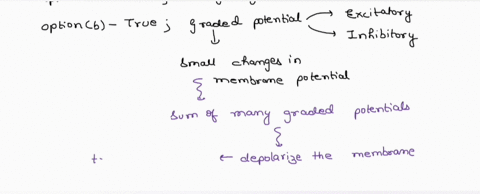 option(b) - True ; graded potential → Excitatory
→ Inhibitory
small changes in
membrane potential
sum of many graded potentials
← depolarize the membrane
t.